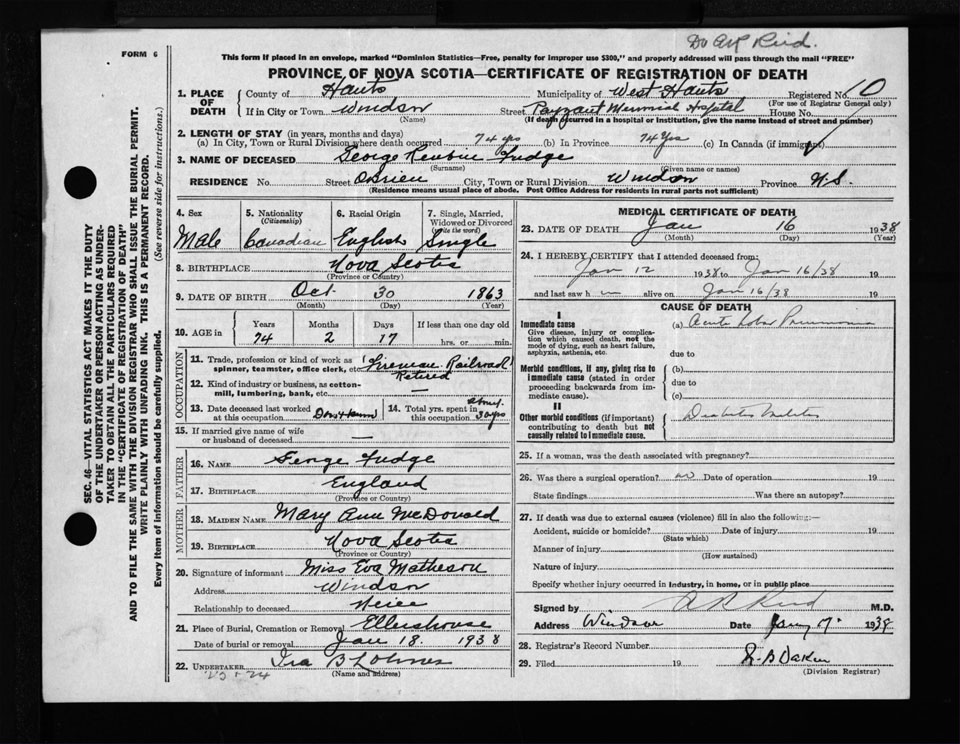 Dr AR Reid.
FORM 6
This form if placed in an envelope, marked "Dominion Statistics—Free, penalty for improper use $300," and properly addressed will pass through the mail "FREE"
PROVINCE OF NOVA SCOTIA—CERTIFICATE OF REGISTRATION OF DEATH
1. PLACE OF DEATH
County of Hants Municipality of West Hants Registered No. 10
(For use of Registrar General only)
If in City or Town Windsor Street Payzant Memorial Hospital House No.
(Name) (If death occurred in a hospital or institution, give the name instead of street and number)
2. LENGTH OF STAY (in years, months and days)
(a) In City, Town or Rural Division where death occurred 74 yrs (b) In Province 74 Yrs (c) In Canada (if immigrant)
3. NAME OF DECEASED George Reubin Fudge
(Surname) (Given name or names)
RESIDENCE No. Street OBrien City, Town or Rural Division Windsor Province N.S.
(Residence means usual place of abode. Post Office Address for residents in rural parts not sufficient)
SEC. 46—VITAL STATISTICS ACT MAKES IT THE DUTY
OF THE UNDERTAKER OR PERSON ACTING AS UNDER-
TAKER TO OBTAIN ALL THE PARTICULARS REQUIRED
IN THE "CERTIFICATE OF REGISTRATION OF DEATH"
AND TO FILE THE SAME WITH THE DIVISION REGISTRAR WHO SHALL ISSUE THE BURIAL PERMIT.
WRITE PLAINLY WITH UNFADING INK. THIS IS A PERMANENT RECORD.
Every item of information should be carefully supplied. (See reverse side for instructions.)
4. Sex 5. Nationality 6. Racial Origin 7. Single, Married,
(Citizenship) Widowed or Divorced
(write the word)
Male Canadian English Single
8. BIRTHPLACE Nova Scotia
(Province or Country)
9. DATE OF BIRTH Oct. 30 1863
(Month) (Day) (Year)
10. AGE in Years Months Days If less than one day old
74 2 17 hrs. or min.
OCCUPATION
11. Trade, profession or kind of work as
spinner, teamster, office clerk, etc. Fireman Railroad
Retired
12. Kind of industry or business, as cotton-
mill, lumbering, bank, etc.
13. Date deceased last worked
at this occupation Don't know
14. Total yrs. spent in
this occupation about 30 yrs
15. If married give name of wife
or husband of deceased —
FATHER
16. NAME George Fudge
17. BIRTHPLACE England
(Province or Country)
MOTHER
18. MAIDEN NAME Mary Ann McDonald
19. BIRTHPLACE Nova Scotia
(Province or Country)
20. Signature of informant Miss Eva Matheson
Address Windsor
Relationship to deceased Neice
21. Place of Burial, Cremation or Removal Ellershouse
Date of burial or removal Jan 18. 1938
22. UNDERTAKER Ira B Lohnes
(Name and address)
MEDICAL CERTIFICATE OF DEATH
23. DATE OF DEATH Jan 16 1938
(Month) (Day) (Year)
24. I HEREBY CERTIFY that I attended deceased from:
Jan 12 1938 to Jan 16/38 19
and last saw him alive on Jan 16/38 19
CAUSE OF DEATH
I
Immediate cause
Give disease, injury or complica-
tion which caused death, not the
mode of dying, such as heart failure,
asphyxia, asthenia, etc.
(a) Acute Lobar Pneumonia
due to
Morbid conditions, if any, giving rise to
immediate cause (stated in order
proceeding backwards from im-
mediate cause).
(b)
due to
(c)
II
Other morbid conditions (if important)
contributing to death but not
causally related to immediate cause.
Diabetes Mellitus
25. If a woman, was the death associated with pregnancy?
26. Was there a surgical operation? no Date of operation 19
State findings Was there an autopsy?
27. If death was due to external causes (violence) fill in also the following:—
Accident, suicide or homicide? Date of injury 19
(State which)
Manner of injury
(How sustained)
Nature of injury
Specify whether injury occurred in industry, in home, or in public place
Signed by A R Reid M.D.
Address Windsor Date Jany 17. 1938
28. Registrar's Record Number
29. Filed 19
(Division Registrar)